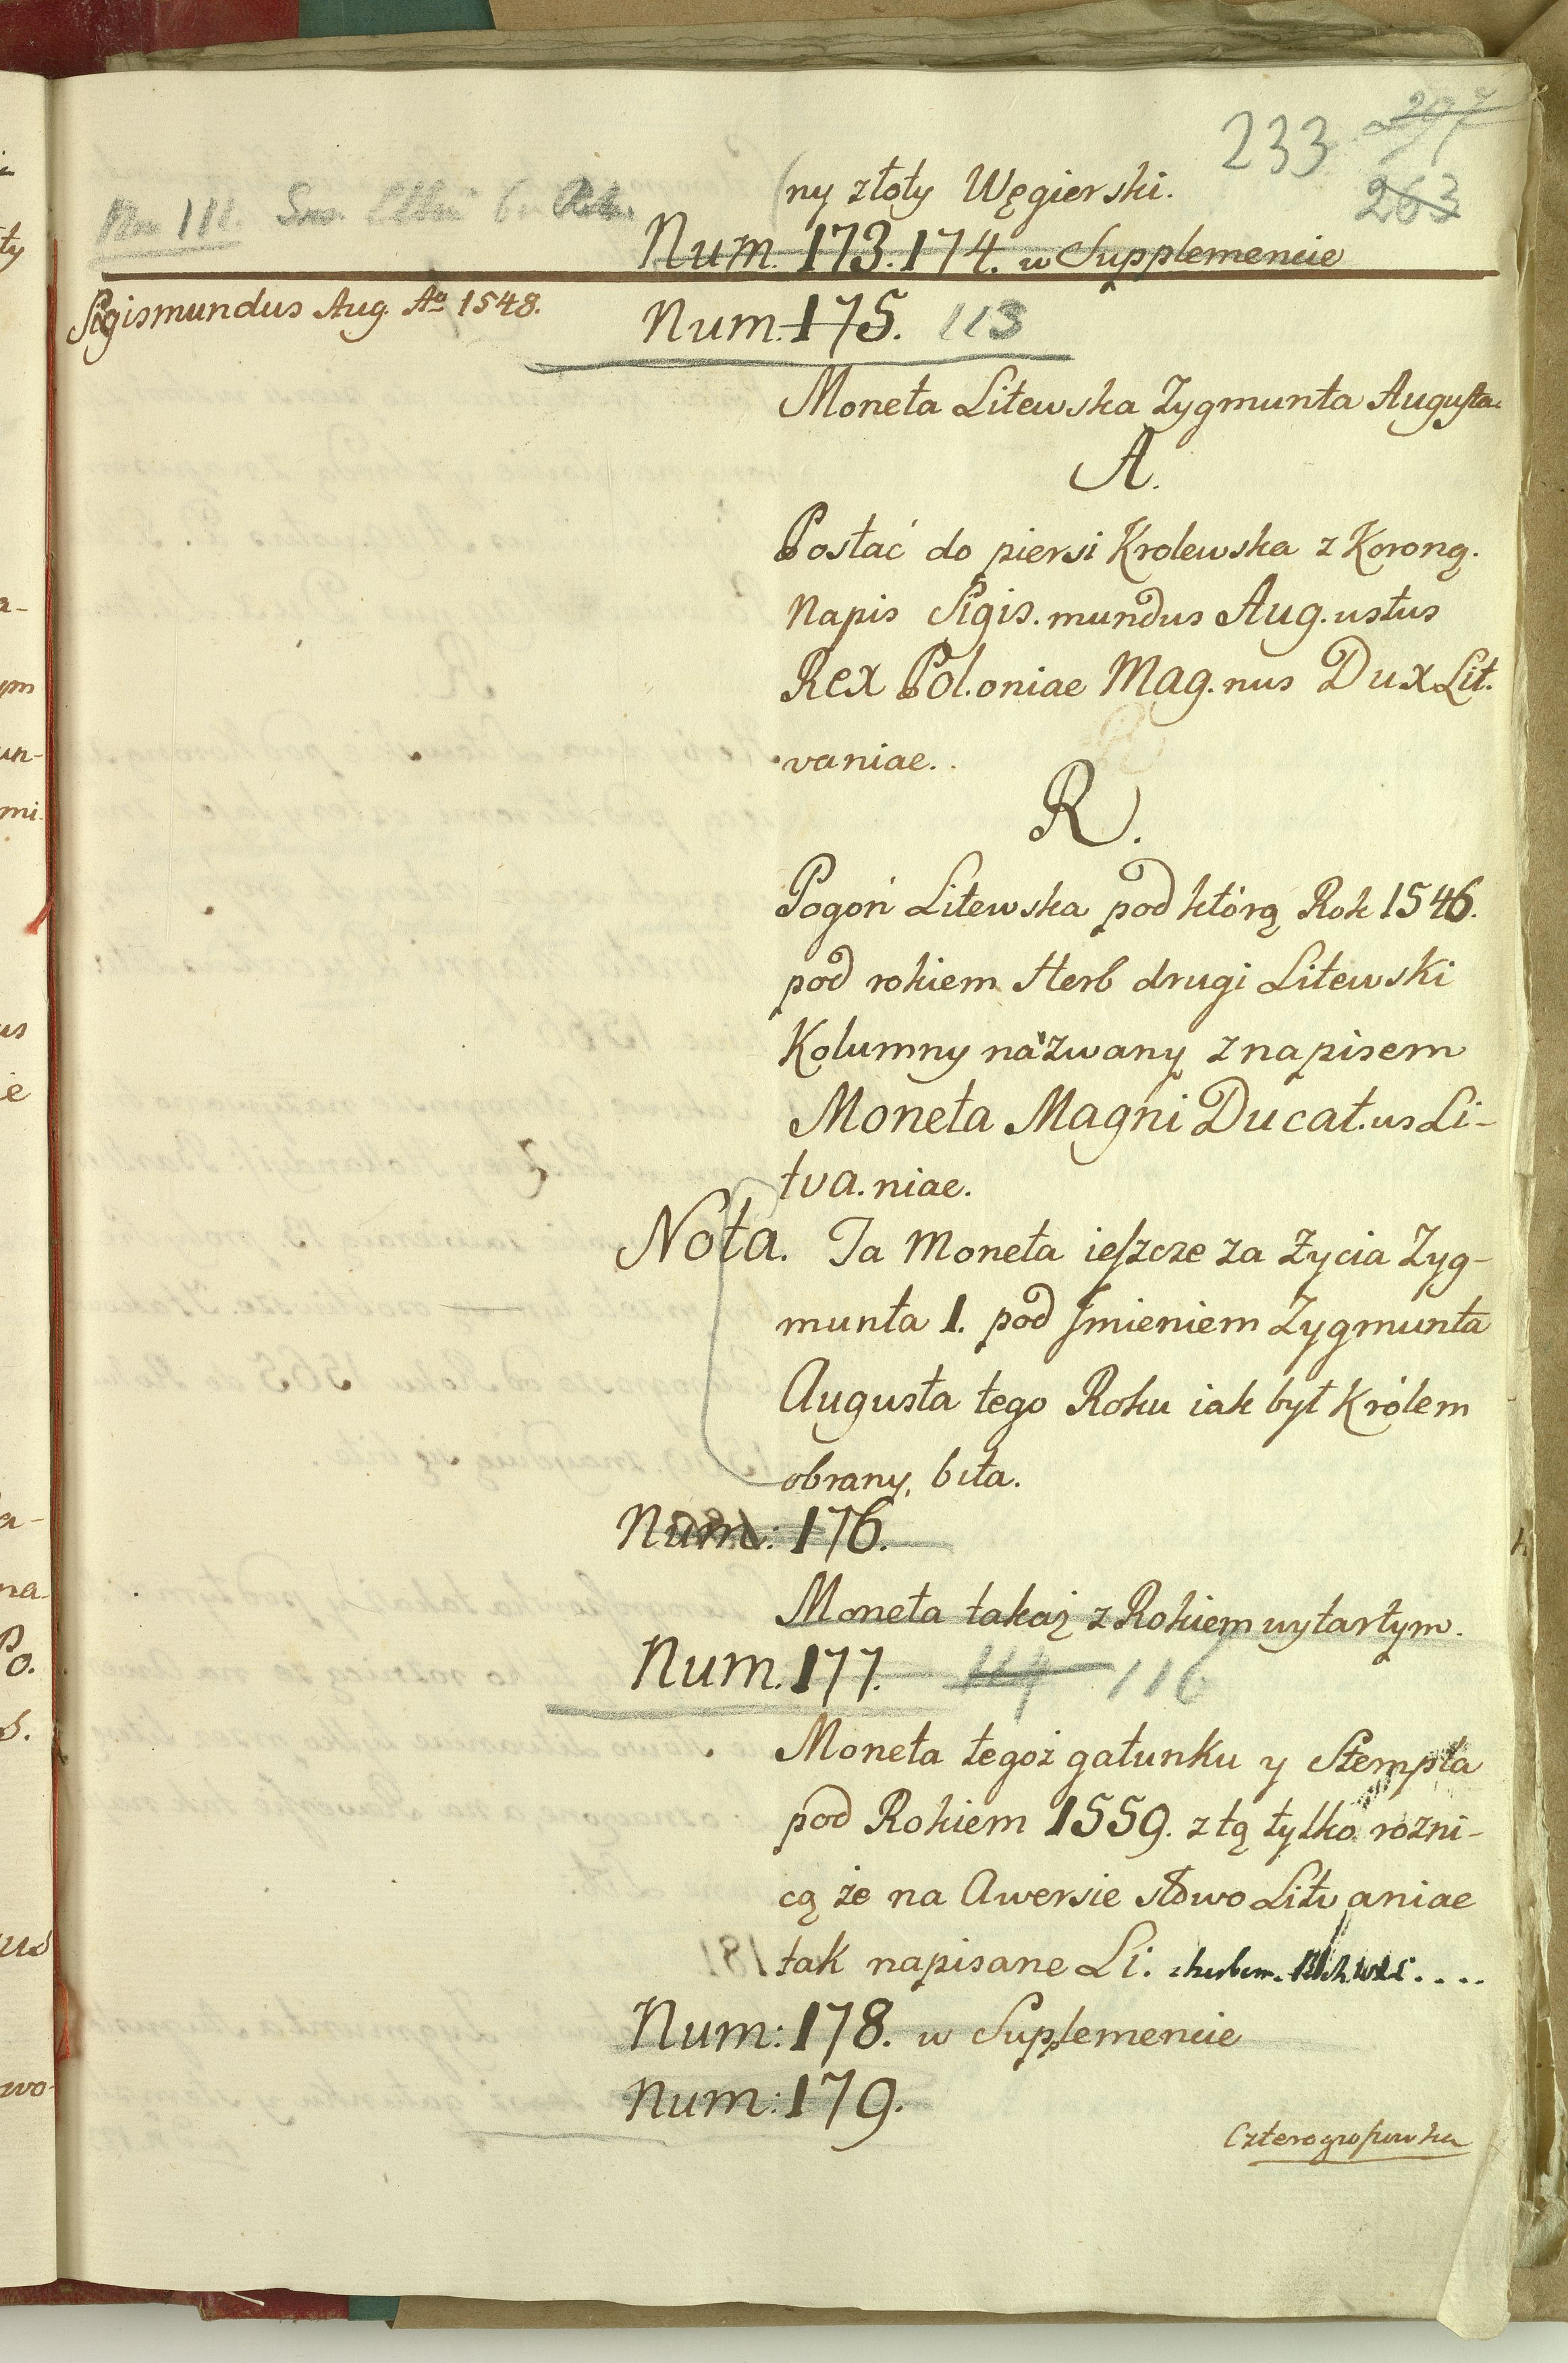 233 297
263
(ny złoty Węgierski.
Num. 173. 174. w Supplemencie
Sigismundus Aug. Aô 1548.
Num. 175. 113
Moneta Litewska Zygmunta Augusta.
A.
Postać do piersi Krolewska z Koroną.
Napis Sigis. mundus Aug. ustus
Rex Pol. oniae Mag. nus Dux Lit.
vaniae.
R.
Pogoń Litewska pod którą Rok 1546.
pod rokiem Herb drugi Litewski
Kolumny nazwany z napisem
Moneta Magni Ducat. us Li-
tva. niae.
Nota. Ta Moneta ieszcze za Zycia Zyg-
munta 1. pod Jmieniem Zygmunta
Augusta tego Roku iak był Królem
obrany, bita.
Num: 176.
Moneta takaż z Rokiem wytartym.
Num. 177. 114 116
Moneta tegoż gatunku y Stempla
pod Rokiem 1559. z tą tylko rozni-
cą że na Awersie słowo Litvaniae
tak napisane Li:
Num: 178. w Suplemencie
Num: 179.
Czterogroszowka